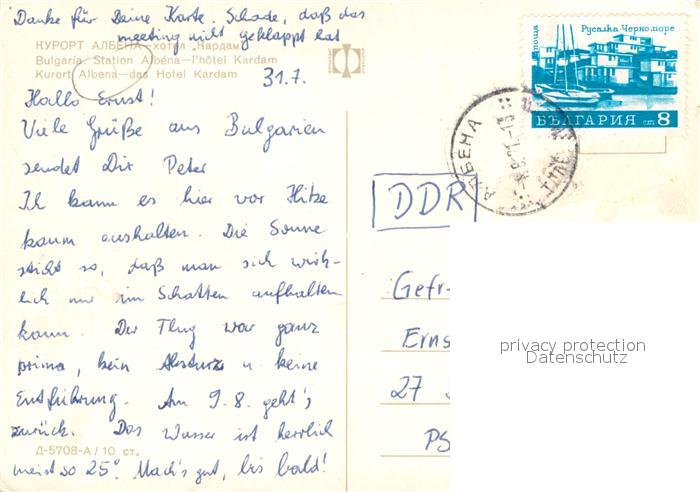 Danke für Deine Karte. Schade, daß das
meeting nicht geklappt hat
КУРОРТ АЛБЕНА – хотел „Кардам"
Bulgaria. Station Albéna—l'hôtel Kardam
Kurort Albena—das Hotel Kardam
31.7.
Hallo Ernst!
Viele Grüße aus Bulgarien
sendet Dir Peter
Ich kann es hier vor Hitze
kaum aushalten. Die Sonne
sticht so, daß man sich wirk-
lich nur im Schatten aufhalten
kann. Der Flug war ganz
prima, kein Absturz u. keine
Entführung. Am 9.8. geht's
zurück. Das Wasser ist herrlich
meist so 25°. Mach's gut, bis bald!
Д-5708-А / 10 ст.
поща
Русалка Черно море
БЪЛГАРИЯ ст 8
АЛБЕНА
DDR
Gefr-
Erns
27
PS
privacy protection
Datenschutz